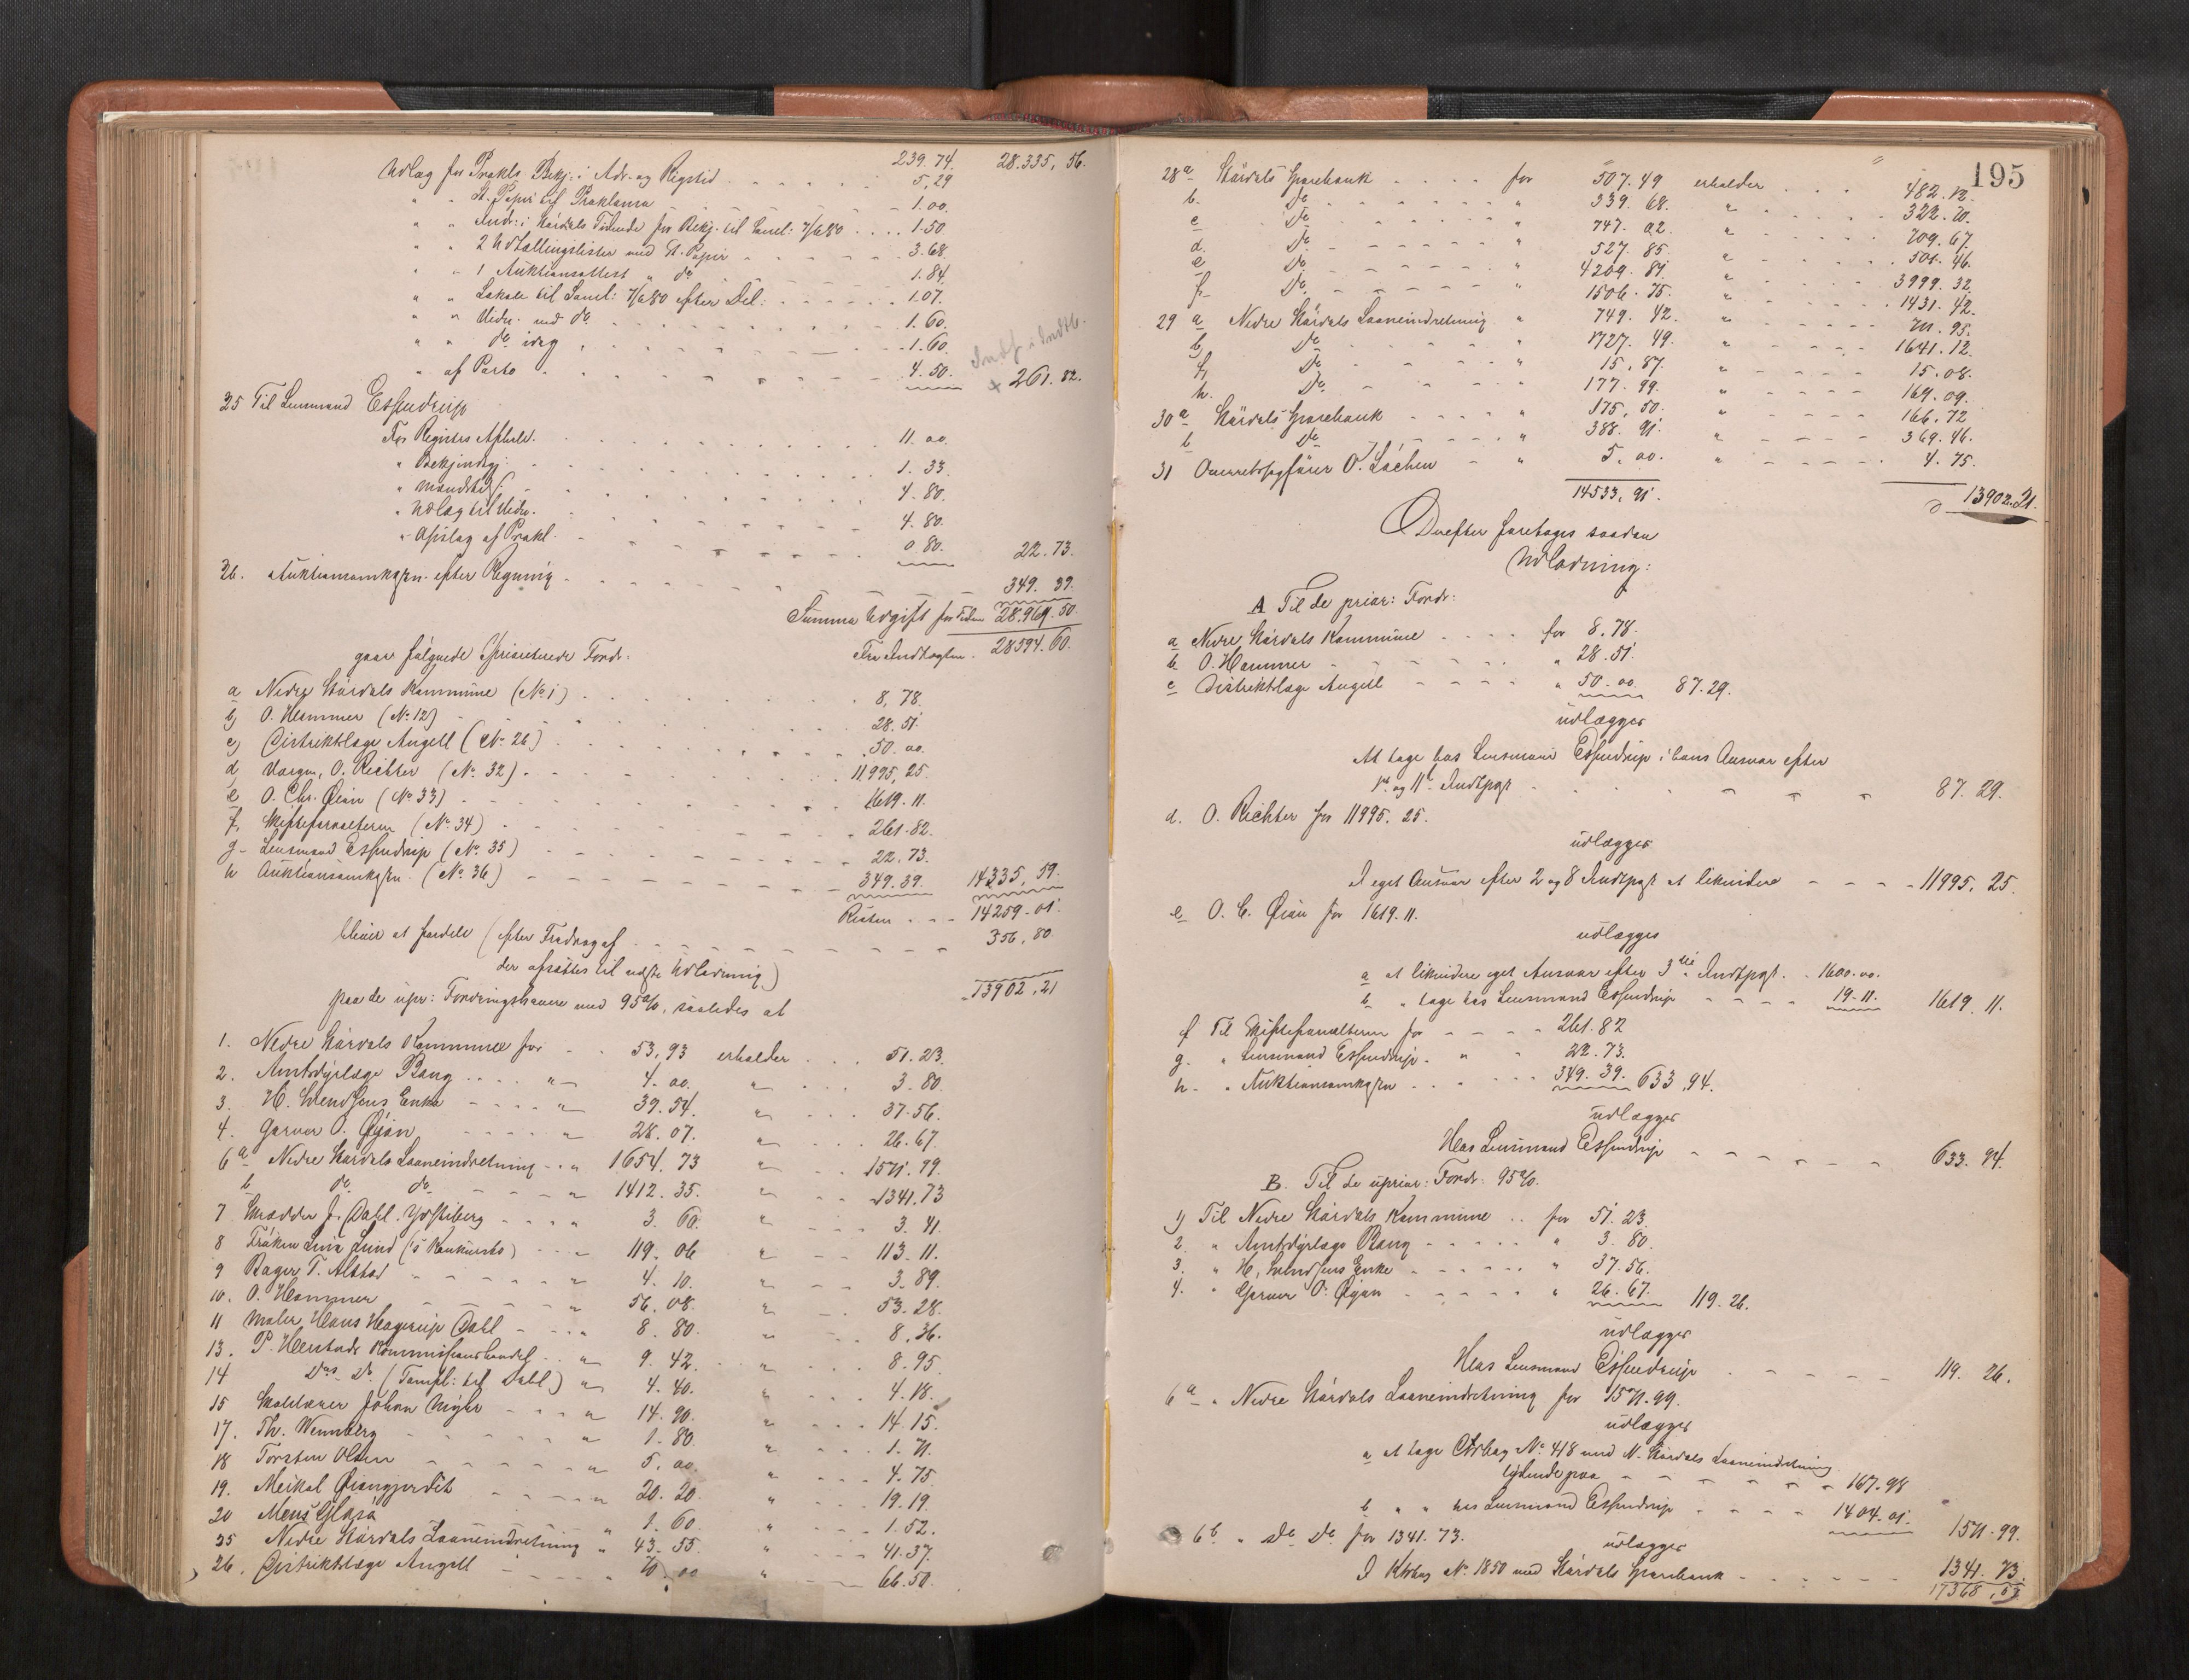 239.74. 28.335,56.
Udlæg for Prokls Bekj: i Adr. og Rigstid . . . 5,29
" " St. Papir til Proklama . . . 1.00.
" " Indr: i Stördals Tidende for Bekj. til Saml: 7/6 80 . . . . 1.50
" " 2 Udtallingslister med St. Papir . . . 3.68.
" " 1 Auktionsattest " do . . . 1.84.
" " Lokale til Saml: 7/6 80 efter Del: . . . 1.07.
" " Vidn. ved do . . . 1.60.
" " do idag . . . 1.60.
" af Porto . . . 4.50. + 261.82.
35 Til Lensmand Essendrup
For Registr. Afhold. . . . 11.00.
" Bekjendtgj: . . . 1.33.
" . . . 4.80.
" Udlæg til Vidn. . . . 4.80.
" Opslag af Prokl. . . . 0.80. 22.73.
36. Auktionsomkgrn. efter Regning . . . 349.39.
Summa Udgift 28.969.50.
Fra Indtægten . 28594.60.
gaar følgende prioriterede Fordr:
a Nedre Stördals Kommune (No 1) . . . 8,78.
b, O. Hammer (No 12) . . . 28.51.
c, Distriktslæge Angell (No 26) . . . 50.00.
d O. Richter (No. 32) . . . 11.995,25.
e O. Chr. Øian (No 33) . . . 1619.11.
f, Skifteforvalteren (No 34) . . . 261.82.
g Lensmand Essendrup (No. 35) . . . 22.73.
h Auktionsomkgrn. (No. 36) . . . 349.39. 14335,59.
Resten . . . 14259.01.
bliver at fordele (efter Fradrag af . . . 356,80.
der afsættes til næste Udlodning)
13902,21
paa de upr: Fordringshavere med 95%, saaledes at
1. Nedre Stördals Kommune for . . 53,93 erholder . . . 51.23.
2. Amtsdyrlæge Bang . . . " 4.00. " . . . 3.80.
3. H. Svendsens Enke . . . " 39.54. " . . . 37.56.
4. Garver O. Øyan . . . " 28.07. " . . . 26.67.
6a Nedre Stördals Laaneindretning . . " 1654.73 " . . . 1571.99.
b do do . . . " 1412.35. " . . . 1341.73
7 Skrædder J. Dahl . . . " 3.60. " . . . 3.41.
8 Frøken Lina Lund . . . " 119.06 " . . . 113.11.
9 Bager T. Alstad . . . " 4.10. " . . . 3.89.
10. O. Hammer . . . " 56.08. " . . . 53.28.
11 Maler Hans Hagerup Dahl . . . " 8.80. " . . . 8.36.
13. P. Herstads Kommissionshandel . . " 9.42. " . . . 8.95.
14 Do Do (Tømpl: til Dahl) " 4.40. " . . . 4.18.
15 Johan Myhr . . . " 14.90. " . . . 14.15.
17. Th. Wennberg . . . " 1.80. " . . . 1.71.
18 Torsten Olsen . . . " 5.00. " . . . 4.75.
19. Meikal Øiangjerdet . . . " 20.20. " . . . 19.19.
20 Mens Glasø . . . " 1.60. " . . . 1.52.
25 Nedre Stördals Laaneindretning " 43.55. " . . . 41.37.
26. Distriktslæge Angell . . . 70.00 " . . . 66.50.
195
28a Stördals Sparebank . . . for 507.49 erholder . . . 482.12.
b. Do . . . " 339.68. " . . . 322.70.
c Do . . . " 747.02. " . . . 709.67.
d. Do . . . " 527.85. " . . . 501.46.
e Do . . . " 4209.81. " . . . 3999.32.
f. Do . . . " 1506.75. " . . . 1431.42.
29 a Nedre Stördals Laaneindretning " 749.42. " . . . 711.95.
b, Do . . . " 1727.49. " . . . 1641.12.
g, Do . . . " 15,87. " . . . 15.08.
h. Do . . . " 177.99. " . . . 169.09.
30a Stördals Sparebank . . . " 175,50. " . . . 166,72
b Do . . . " 388.91. " . . . 369.46.
31 Overretssagfører O. Löchen . . " 5.00. " . . . 4.75.
14533,91. 13902.21.
Derefter foretages saadan
Udlodning:
A Til de prior: Fordr:
a Nedre Stördals Kommune . . . for 8.78.
b O. Hammer . . . " 28.51.
c Distriktslæge Angell . . . " 50.00. 87.29.
udlægges
At tage hos Lensmand Essendrup i hans Ansvar efter
1ste og 11te Indtpgt . . . 87.29.
d. O. Richter for 11995.25.
udlægges
I eget Ansvar efter 2 og 8 Indtpgt at likvidere . . . 11995.25.
e O. C. Øian for 1619.11.
udlægges
a at likvidere eget Ansvar efter 3die Indtpgt. . 1600.00.
b " tage hos Lensmand Essendrup . . . 19.11. 1619.11.
f Til Skifteforvalteren for . . . 261.82
g. " Lensmand Essendrup . " " 22.73.
h. " Auktionsomkgrn . . . 349.39. 633,94.
udlægges
Hos Lensmand Essendrup . . . 633.94.
B. Til de uprior: Fordr. 95%.
1, Til Nedre Stördals Kommune . . for 51.23.
2. " Amtsdyrlæge Bang . . . " 3.80.
3. " H. Svendsens Enke . . . " 37.56.
4. " Garver O. Øyan . . . " 26.67. 119.26.
udlægges
Hos Lensmand Essendrup . . . 119.26.
6a " Nedre Stördals Laaneindretning for 1571.99.
udlægges
a at tage Ctrbog No 418 med N. Stördals Laaneindretning
lydende paa . . . 167.98
b " " hos Lensmand Essendrup . . . 1404.01. 1571.99.
6b. " Do Do for 1341.73.
udlægges
I Ktrbog No 1850 med Stördals Sparebank . . . 1341.73.
17368,53